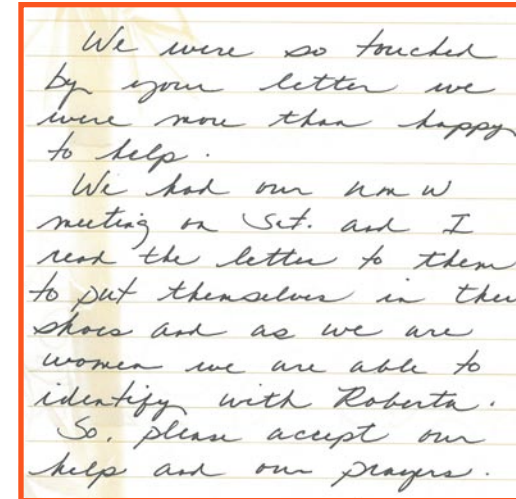 We were so touched
by your letter we
were more than happy
to help.
We had our
meeting on Sat. and I
read the letter to them
to put themselves in their
shoes and as we are
women we are able to
identify with Roberta.
So, please accept our
help and our prayers.